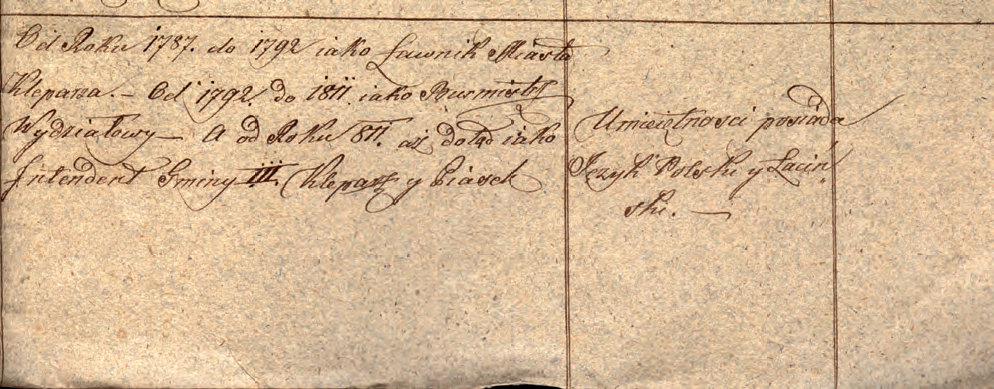 Od Roku 1787. do 1792 iako Ławnik Miasta
Kleparza. – Od 1792. do 1811. iako Burmistrz
Wydziałowy – A od Roku 811. aż dotąd iako
Intendent Gminy III Kleparz y Piasek
Umieiętnosci posiada
Język Polski y Łaciń
ski. –